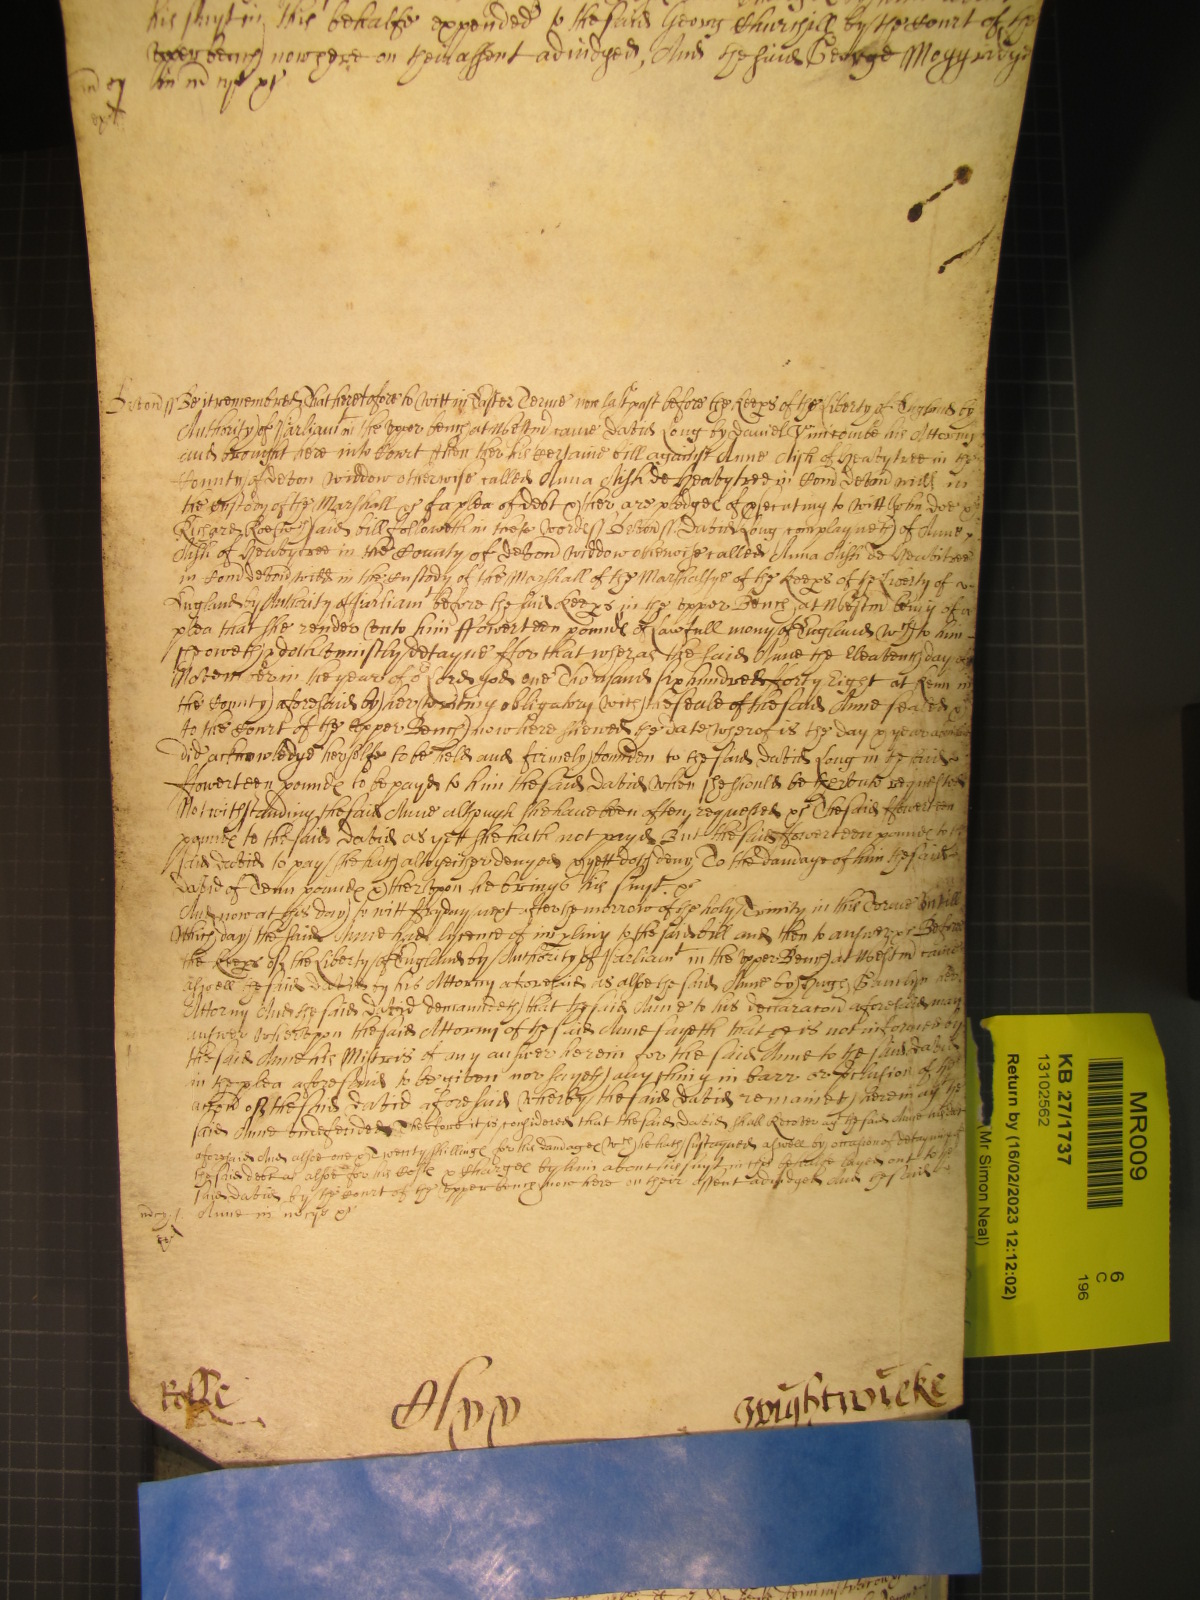 his suyt in this behalfe expended to the said George Churchill by the Court of the
upper bench now here on their assent adiudged, And the said George Mogg
in m
Devon ss Be it remembred, that heretofore to witt in Easter Terme now last past before the Keeps of the Liberty of England by
Authority of Parliamt in the upper bench at Westm came David Long by Daniell his Attorny
and brought here into Court then ther his certaine bill against Anne Aish of Heavytree in the
County of Devon widdow otherwise called Anna Aish de Heavytree in Com Devon wid in
the custody of the Marshall &c of a plea of debt & ther are pledges of psecuting to witt John Doe &
Richard Roe said bill followeth in these words ss Devon ss David Long complayneth of Anne
Aish of Heavytree in the County of Devon widdow otherwise called Anna Aish de Heavitree
in Com Devon wid in the custody of the Marshall of the Marshallsye of the Keeps of the Liberty of
England by Authority of Parliamt before the said Keeps in the upper Bench at Westm being of a
plea that she render unto him ffowerteen pounds of lawfull mony of England wch to him
she oweth & doth uniustly detayne ffor that wheras the said Anne the Eleaventh day of
November in the yeare of or Lord god one Thousand six hundred forty eight at Kenn in
the County aforesaid by her writing obligatory with the seale of the said Anne sealed &
to the Court of the upper Bench now here shewed the date wherof is the day & year
did acknowledge her selfe to be held and firmely bounden to the said David Long in the said
ffowerteen pounds to be payd to him the said David when she should be therunto requested
Notwithstanding the said Anne although she have been often requested &c The said ffowerteen
pounds to the said David as yett she hath not payd But the said ffowerteen pounds to the
said David to pay she hath altogeither denyed & yett doth deny To the damage of him the said
David of Tenn pounds & therupon he brings his suyt &c
And now at this day to witt ffryday next after the morrow of the holy Trinity in this Terme untill
which day the said Anne had licence of imparling to the said bill and then to answer &c Before
the Keeps of the Liberty of England by Authority of Parliamt in the upper Bench at Westm came
aswell the said David by his Attorny aforesaid as also the said Anne by Hugh her
Attorny And the said David demandeth that the said Anne to his declaracon aforesaid may
answer wherupon the said Attorny of the said Anne sayeth that he is not informed by
the said Anne his Mistris of any answer herein for the said Anne to the said David
in the plea aforesaid to be given nor sayeth any thing in barr or preclusion of the
accon of the said David aforesaid wherby the said David remaineth therein agt the
said Anne undefended Therfore it is considered that the said David shall Recover agt the said Anne his debt
aforesaid And also one & twenty shillings for his damages wch he hath sustayned aswell by occasion of detayning of
the said debt as also for his Costs & charges by him about his suyt in this behalfe layed out to the
said David by the Court of the upper bench now here on their assent adiudged And the said
Anne in mcye &c
Rolle
Wightwicke
MR009
6
C
196
KB 27/1737
13102562
Return by (16/02/2023 12:12:02)
(Mr Simon Neal)